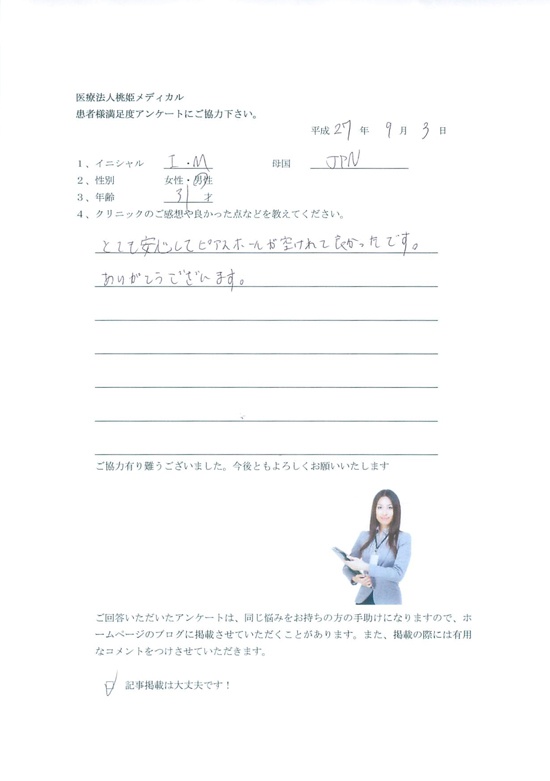 医療法人桃姫メディカル
患者様満足度アンケートにご協力下さい。
平成 27 年 9 月 3 日
1、イニシャル I・M 母国 JPN
2、性別 女性・男性
3、年齢 31 才
4、クリニックのご感想や良かった点などを教えてください。
とても安心してピアスホールが空けれて良かったです。
ありがとうございます。
ご協力有り難うございました。今後ともよろしくお願いいたします
ご回答いただいたアンケートは、同じ悩みをお持ちの方の手助けになりますので、ホ
ームページのブログに掲載させていただくことがあります。また、掲載の際には有用
なコメントをつけさせていただきます。
記事掲載は大丈夫です！